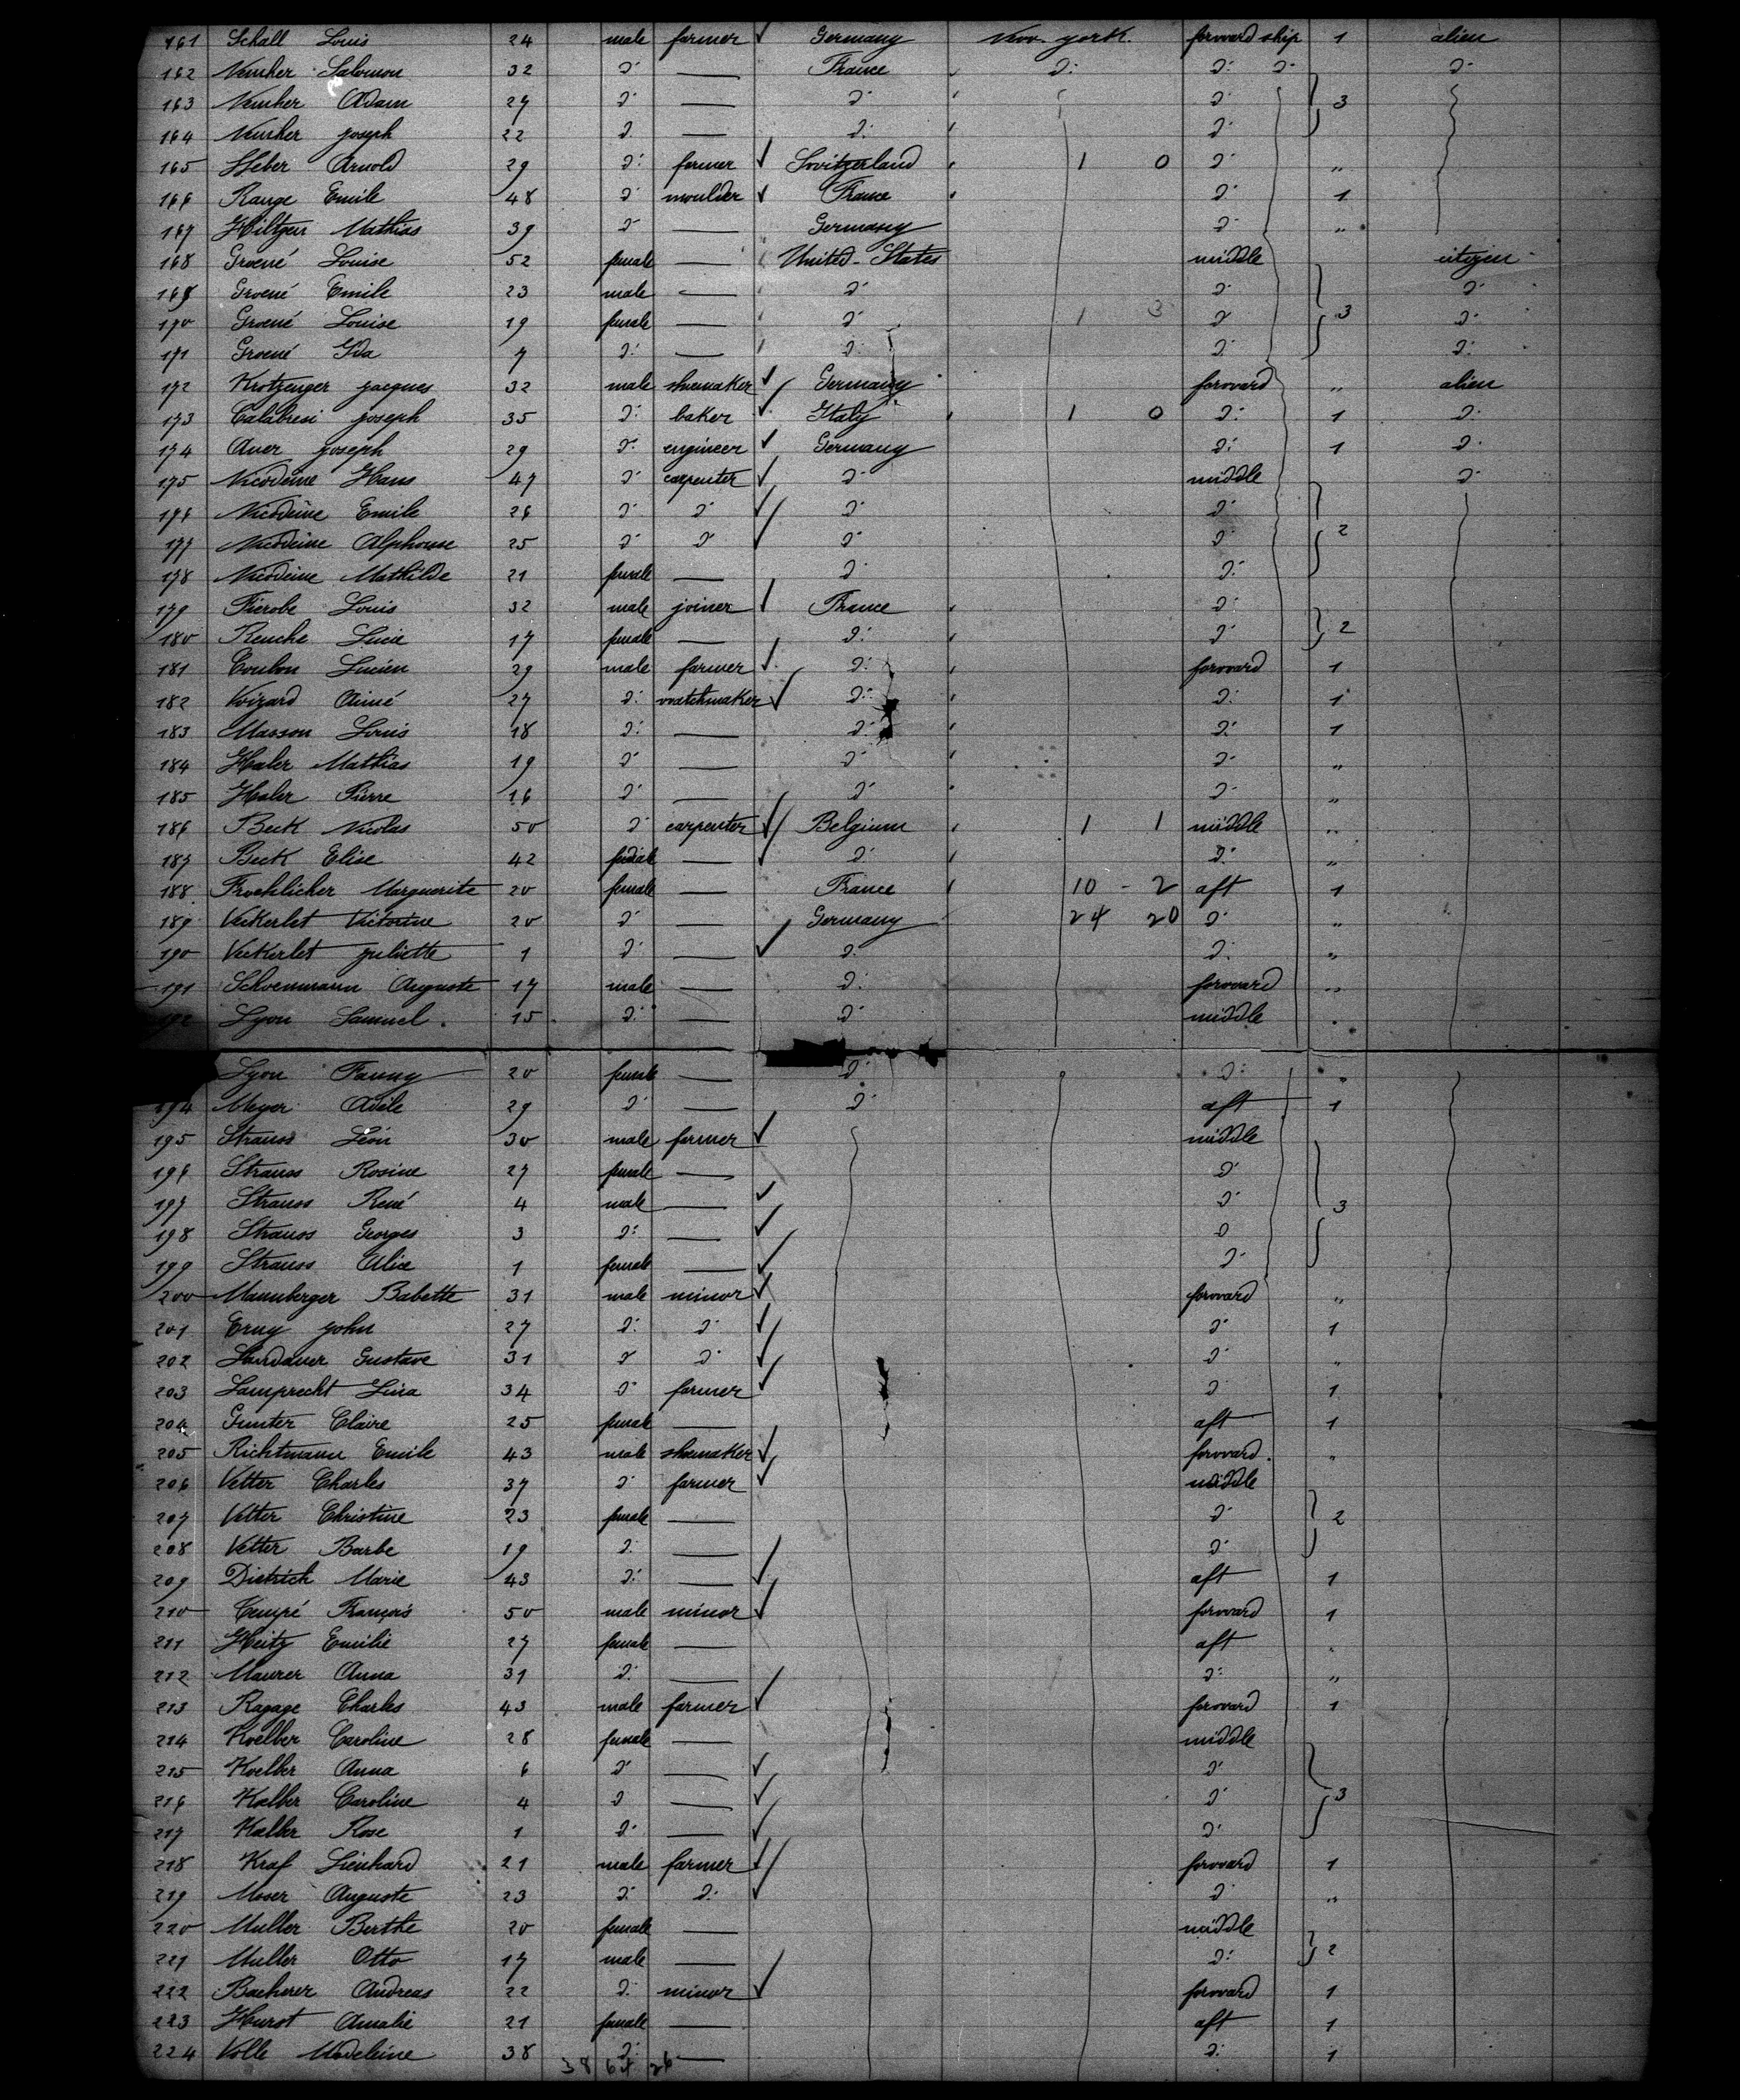 161 Schall Louis 24 male farmer Germany New. york. forward ship 1 alien
162 Salomon 32 d: — France d: d: d: d:
163 Adam 27 d: — d: d: 3
164 joseph 22 d: — d: d:
165 Arnold 29 d: farmer Switzerland 1 0 d: "
166 Range Emile 48 d: moulder France d: 1
167 Hiltgen Mathias 39 d: — Germany d: "
168 Groené Louise 52 female — United-States middle citizen
169 Groené Emile 23 male — d: d: d:
170 Groené Louise 19 female — d: 1 3 d: 3 d:
171 Groené Ida 7 d: — d: d: d:
172 Krotzenger jacques 32 male shoemaker Germany forward " alien
173 Calabresi joseph 35 d: baker Italy 1 0 d: 1 d:
174 Auer joseph 29 d: engineer Germany d: 1 d:
175 Nicodème Hans 47 d: carpenter d: middle d:
176 Nicodème Emile 26 d: d: d: d:
177 Nicodème Alphonse 25 d: d: d: d: 2
178 Nicodème Mathilde 21 female — d: d:
179 Fierobe Louis 32 male joiner France d:
180 Lucie 17 female — d: d: 2
181 Coulon Lucien 29 male farmer d: forward 1
182 Voizard Aimé 27 d: watchmaker d: d: 1
183 Masson Louis 18 d: — d: d: 1
184 Haler Mathias 19 d: — d: d: "
185 Haler Pierre 16 d: — d: d: "
186 Beck Nicolas 50 d: carpenter Belgium 1 1 middle "
187 Beck Elise 42 female — d: d: "
188 Froehlicher Marguerite 20 female — France 10 - 2 aft 1
189 Veckerlet Victorine 20 d: — Germany 24 20 d: "
190 Veckerlet juliette 1 d: — d: d: "
191 Schoenmann Auguste 17 male — d: forward "
192 Lyon Samuel 15 d: — d: middle
Lyon Fanny 20 female — d: d: "
194 Meyer Adèle 29 d: — d: aft 1
195 Strauss Léon 30 male farmer middle
196 Strauss Rosine 27 female — d:
197 Strauss René 4 male — d: 3
198 Strauss Georges 3 d: — d:
199 Strauss Alice 1 female — d:
200 Mannberger Babette 31 male minor forward "
201 Erny john 27 d: d: d: 1
202 Landauer Gustave 31 d: d: d: "
203 Lamprecht Lina 34 d: farmer d: 1
204 Gunter Claire 25 female — aft 1
205 Richtmann Emile 43 male shoemaker forward "
206 Vetter Charles 37 d: farmer middle
207 Vetter Christine 23 female — d: 2
208 Vetter Barbe 19 d: — d:
209 Dietrich Marie 43 d: — aft 1
210 Cempé François 50 male minor forward 1
211 Heitz Emilie 27 female — aft
212 Maurer Anna 31 d: — d: "
213 Ragage Charles 43 male farmer forward 1
214 Koelber Caroline 28 female — middle
215 Koelber Anna 6 d: — d:
216 Kælber Caroline 4 d: — d: 3
217 Kælber Rose 1 d: — d:
218 Kraf Lienhard 21 male farmer forward 1
219 Moser Auguste 23 d: d: d: "
220 Muller Berthe 20 female — middle
221 Muller Otto 17 male — d: 2
222 Bacherer Andreas 22 d: minor forward 1
223 Hurst Amalie 21 female — aft 1
224 Volle Madeleine 38 d: — d: 1
38 64 26